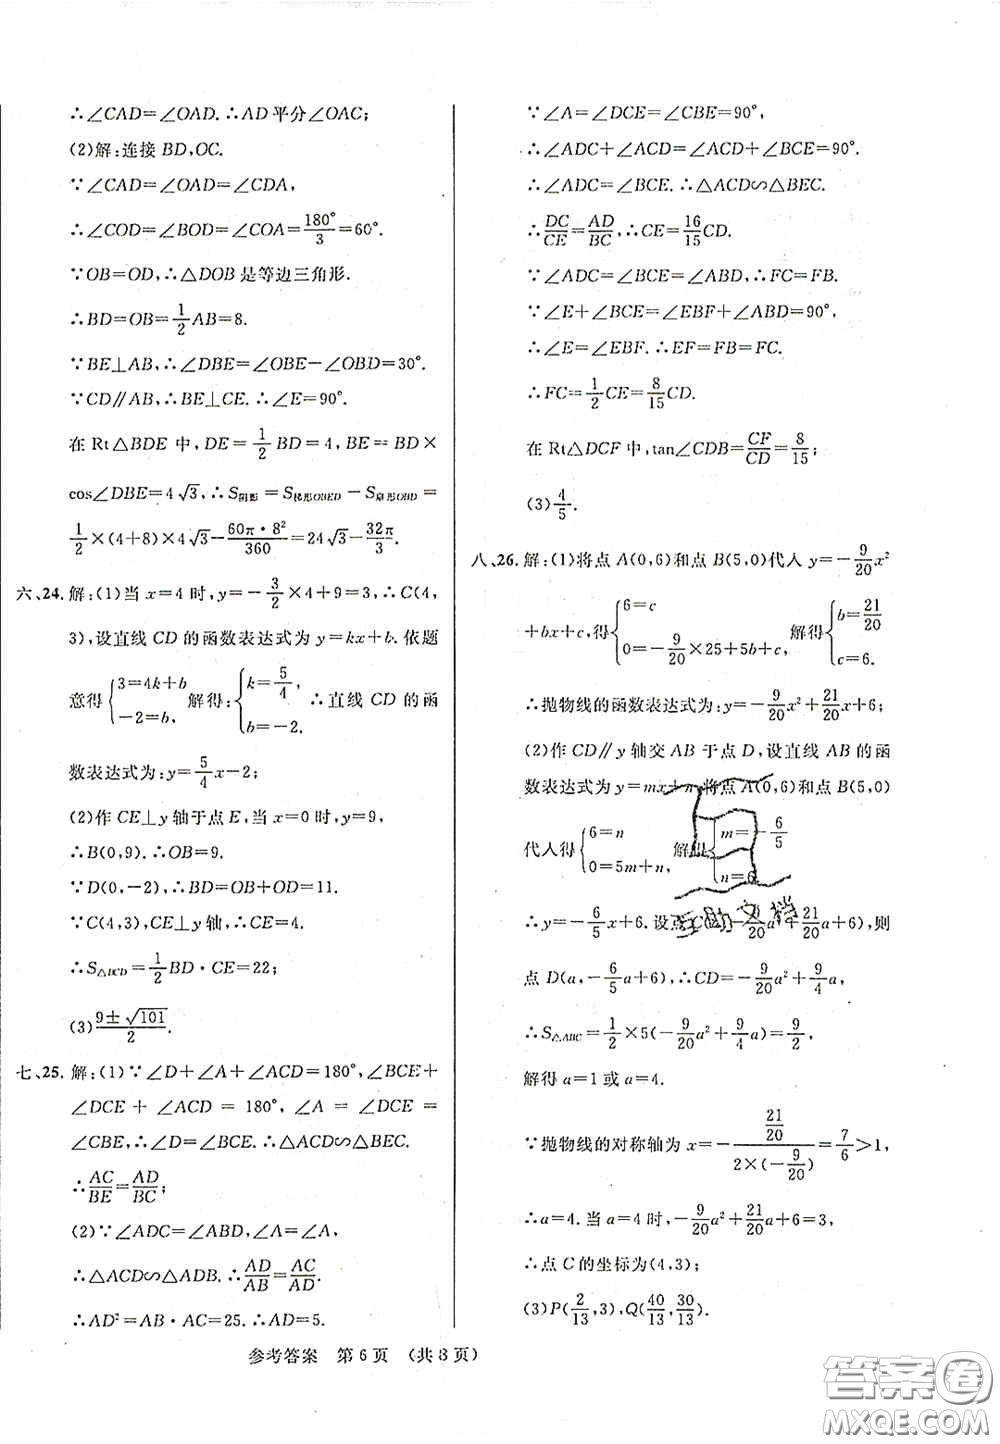 ∴∠CAD=∠OAD.∴AD平分∠OAC;
(2)解:连接BD,OC.
∵∠CAD=∠OAD=∠CDA,
∴∠COD=∠BOD=∠COA=180°/3=60°.
∵OB=OD,∴△DOB是等边三角形.
∴BD=OB=1/2AB=8.
∵BE⊥AB,∴∠DBE=∠OBE-∠OBD=30°.
∵CD∥AB,∴BE⊥CE.∴∠E=90°.
在Rt△BDE中,DE=1/2BD=4,BE=BD×
cos∠DBE=4√3,∴S阴影=S梯形OBED-S扇形OBD=
1/2×(4+8)×4√3-60π·8²/360=24√3-32π/3.
六、24.解:(1)当x=4时,y=-3/2×4+9=3,∴C(4,
3),设直线CD的函数表达式为y=kx+b.依题
意得{3=4k+b -2=b, 解得:{k=5/4, b=-2. ∴直线CD的函
数表达式为:y=5/4x-2;
(2)作CE⊥y轴于点E,当x=0时,y=9,
∴B(0,9).∴OB=9.
∵D(0,-2),∴BD=OB+OD=11.
∵C(4,3),CE⊥y轴,∴CE=4.
∴S△BCD=1/2BD·CE=22;
(3)(9±√101)/2.
七、25.解:(1)∵∠D+∠A+∠ACD=180°,∠BCE+
∠DCE+∠ACD=180°,∠A=∠DCE=
∠CBE,∴∠D=∠BCE.∴△ACD∽△BEC.
∴AC/BE=AD/BC;
(2)∵∠ADC=∠ABD,∠A=∠A,
∴△ACD∽△ADB.∴AD/AB=AC/AD.
∴AD²=AB·AC=25.∴AD=5.
∵∠A=∠DCE=∠CBE=90°,
∴∠ADC+∠ACD=∠ACD+∠BCE=90°.
∴∠ADC=∠BCE.∴△ACD∽△BEC.
∴DC/CE=AD/BC,∴CE=16/15CD.
∵∠ADC=∠BCE=∠ABD,∴FC=FB.
∵∠E+∠BCE=∠EBF+∠ABD=90°,
∴∠E=∠EBF.∴EF=FB=FC.
∴FC=1/2CE=8/15CD.
在Rt△DCF中,tan∠CDB=CF/CD=8/15;
(3)4/5.
八、26.解:(1)将点A(0,6)和点B(5,0)代入y=-9/20x²
+bx+c,得{6=c 0=-9/20×25+5b+c, 解得{b=21/20 c=6.
∴抛物线的函数表达式为:y=-9/20x²+21/20x+6;
(2)作CD∥y轴交AB于点D,设直线AB的函
数表达式为y=mx+n,将点A(0,6)和点B(5,0)
代入得{6=n 0=5m+n, 解得{m=-6/5 n=6.
∴y=-6/5x+6.设点C(a,-9/20a²+21/20a+6),则
点D(a,-6/5a+6),∴CD=-9/20a²+9/4a,
∴S△ABC=1/2×5(-9/20a²+9/4a)=
解得a=1或a=4.
∵抛物线的对称轴为x=-(21/20)/(2×(-9/20))=7/6>1,
∴a=4.当a=4时,-9/20a²+21/20a+6=3,
∴点C的坐标为(4,3);
(3)P(2/13,3),Q(40/13,30/13).
参考答案 第6页 (共8页)
互助文档
答案圈
MXQE.COM